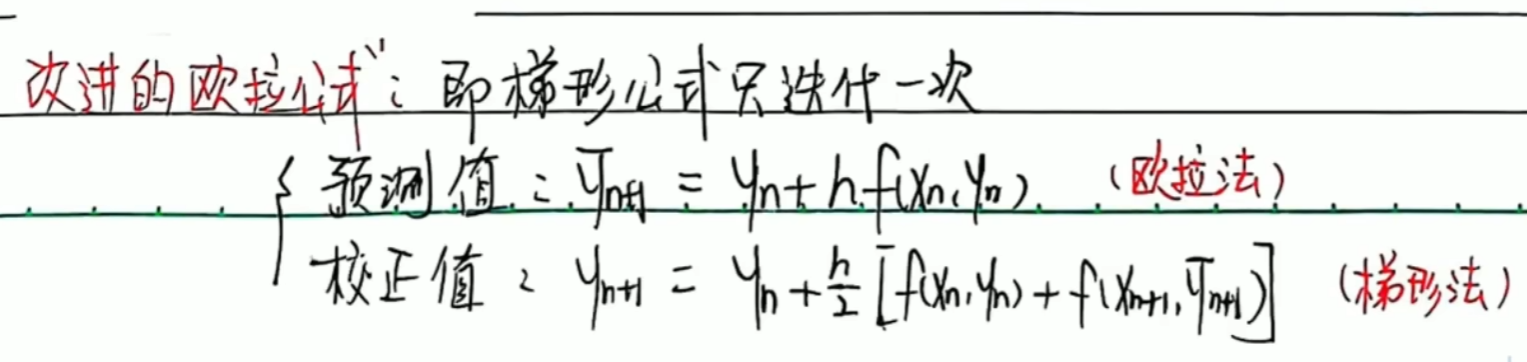 改进的欧拉公式"：即梯形公式只迭代一次
预测值：ȳₙ₊₁ = yₙ + h f(xₙ, yₙ) （欧拉法）
校正值：yₙ₊₁ = yₙ + h/2 [f(xₙ, yₙ) + f(xₙ₊₁, ȳₙ₊₁)] （梯形法）